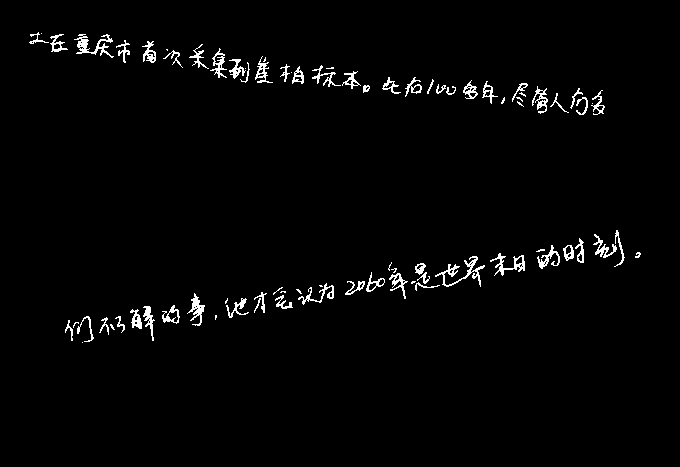 士在重庆市首次采集到崖柏标本。此后100多年,尽管人们多
们不解的事,他才会认为2060年是世界末日的时刻。